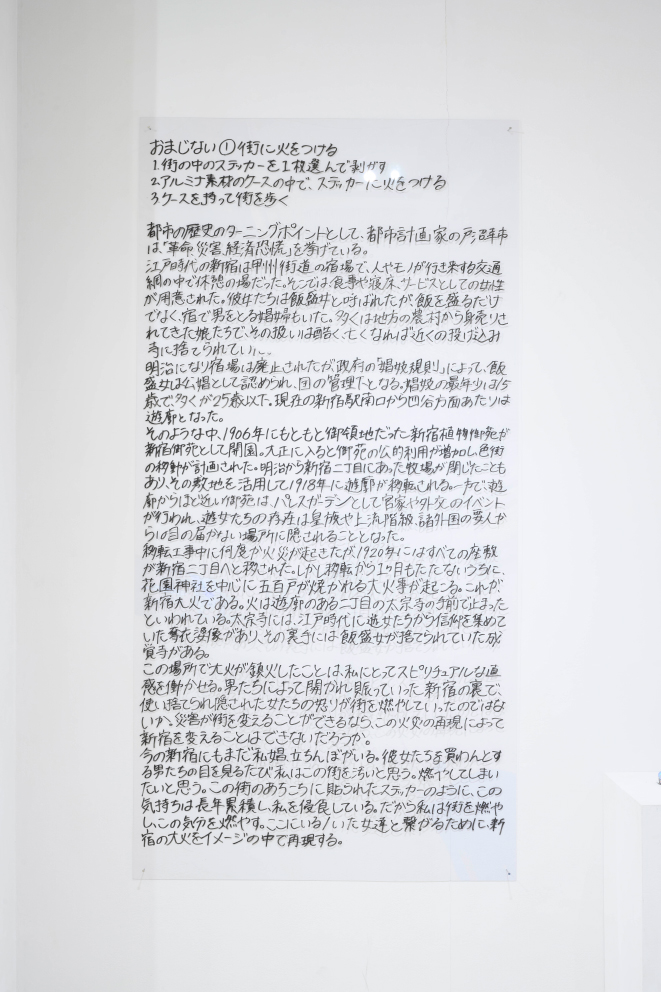 おまじない①街に火をつける
1.街の中のステッカーを1枚選んで剥がす
2.アルミナ素材のケースの中で、ステッカーに火をつける
3.ケースを持って街を歩く
都市の歴史のターニングポイントとして、都市計画家の戸沼幸市
は、「革命、災害、経済恐慌」を挙げている。
江戸時代の新宿は甲州街道の宿場で、人やモノが行き来する交通
網の中で休憩の場だった。そこでは、食事や寝床、サービスとしての女性
が用意された。彼女たちは飯盛女と呼ばれたが、飯を盛るだけ
でなく、宿で男をとる娼婦もいた。多くは地方の農村から身売りさ
れてきた娘たちで、その扱いは酷く、亡くなれば近くの投げ込み
寺に捨てられていた。
明治になり宿場は廃止されたが、政府の「娼妓規則」によって、飯
盛女は公娼として認められ、国の管理下となる。娼妓の最年少は15
歳で、多くが25歳以下。現在の新宿駅南口から四谷方面あたりは
遊廓となった。
そのような中、1906年にもともと御領地だった新宿植物御苑が
新宿御苑として開園。大正に入ると御苑の公的利用が増加し、色街
の移動が計画された。明治から新宿二丁目にあった牧場が閉じたことも
あり、その敷地を活用して1918年に遊廓が移転される。一方で、遊
廓からほど近い御苑は、パレスガーデンとして宮家や外交のイベント
が行われ、遊女たちの存在は皇族や上流階級、諸外国の要人か
らは目の届かない場所に隠されることとなった。
移転工事中に何度か火災が起きたが、1920年にはすべての座敷
が新宿二丁目へと移された。しかし移転から1ヶ月もたたないうちに、
花園神社を中心に五百戸が焼かれる大火事が起こる。これが、
新宿大火である。火は遊廓のある二丁目の太宗寺の手前で止まった
といわれている。太宗寺には、江戸時代に遊女たちから信仰を集めて
いた奪衣婆像があり、その裏手には飯盛女が捨てられていた成
覚寺がある。
この場所で大火が鎮火したことは、私にとってスピリチュアルな直
感を働かせる。男たちによって開かれ賑っていった新宿の裏で、
使い捨てられ隠された女たちの怒りが街を燃やしていったのではな
いか。災害が街を変えることができるなら、この火災の再現によって
新宿を変えることはできないだろうか。
今の新宿にもまだ私娼、立ちんぼがいる。彼女たちを買わんとす
る男たちの目を見るたび私はこの街を汚いと思う。燃やしてしまい
たいと思う。この街のあちこちに貼られたステッカーのように、この
気持ちは長年累積し、私を侵食している。だから私は街を燃や
し、この気分を燃やす。ここにいる/いた女達と繋がるために、新
宿の大火をイメージの中で再現する。